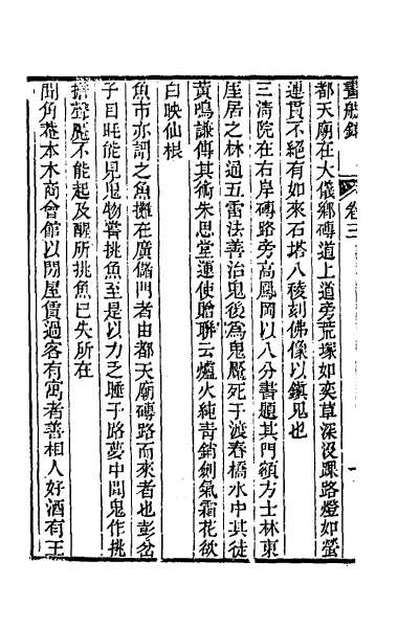 畫舫錄 卷三 一
都天廟在大儀鄉磚道上道旁荒塚如奕草深沒踝路燈如螢
連貫不絕有如來石塔八稜刻佛像以鎮鬼也
三清院在右岸磚路旁高鳳岡以八分書題其門額方士林東
厓居之林通五雷法善治鬼後為鬼壓死于渡春橋水中其徒
黃鳴謙傳其術朱思堂運使貽聯云爐火純青銷劍氣霜花欲
白映仙根
魚市亦謂之魚擁在廣儲門者由都天廟磚路而來者也彭岔
子目眊能見鬼物嘗挑魚至是以力乏睡于路夢中聞鬼作挑
擔聲魘不能起及醒所挑魚已失所在
聞角菴本木商會館以閒屋賃過客有寓者善相人好酒有王